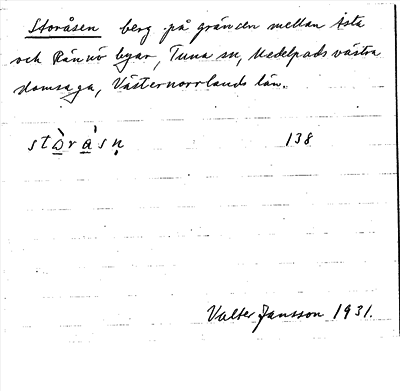 Storåsen berg på gränsen mellan Åsta
och Rännö byar, Tuna sn, Medelpads västra
domsaga, Västernorrlands län.
stɔ̀rásṇ 138
Valter Jansson 1931.